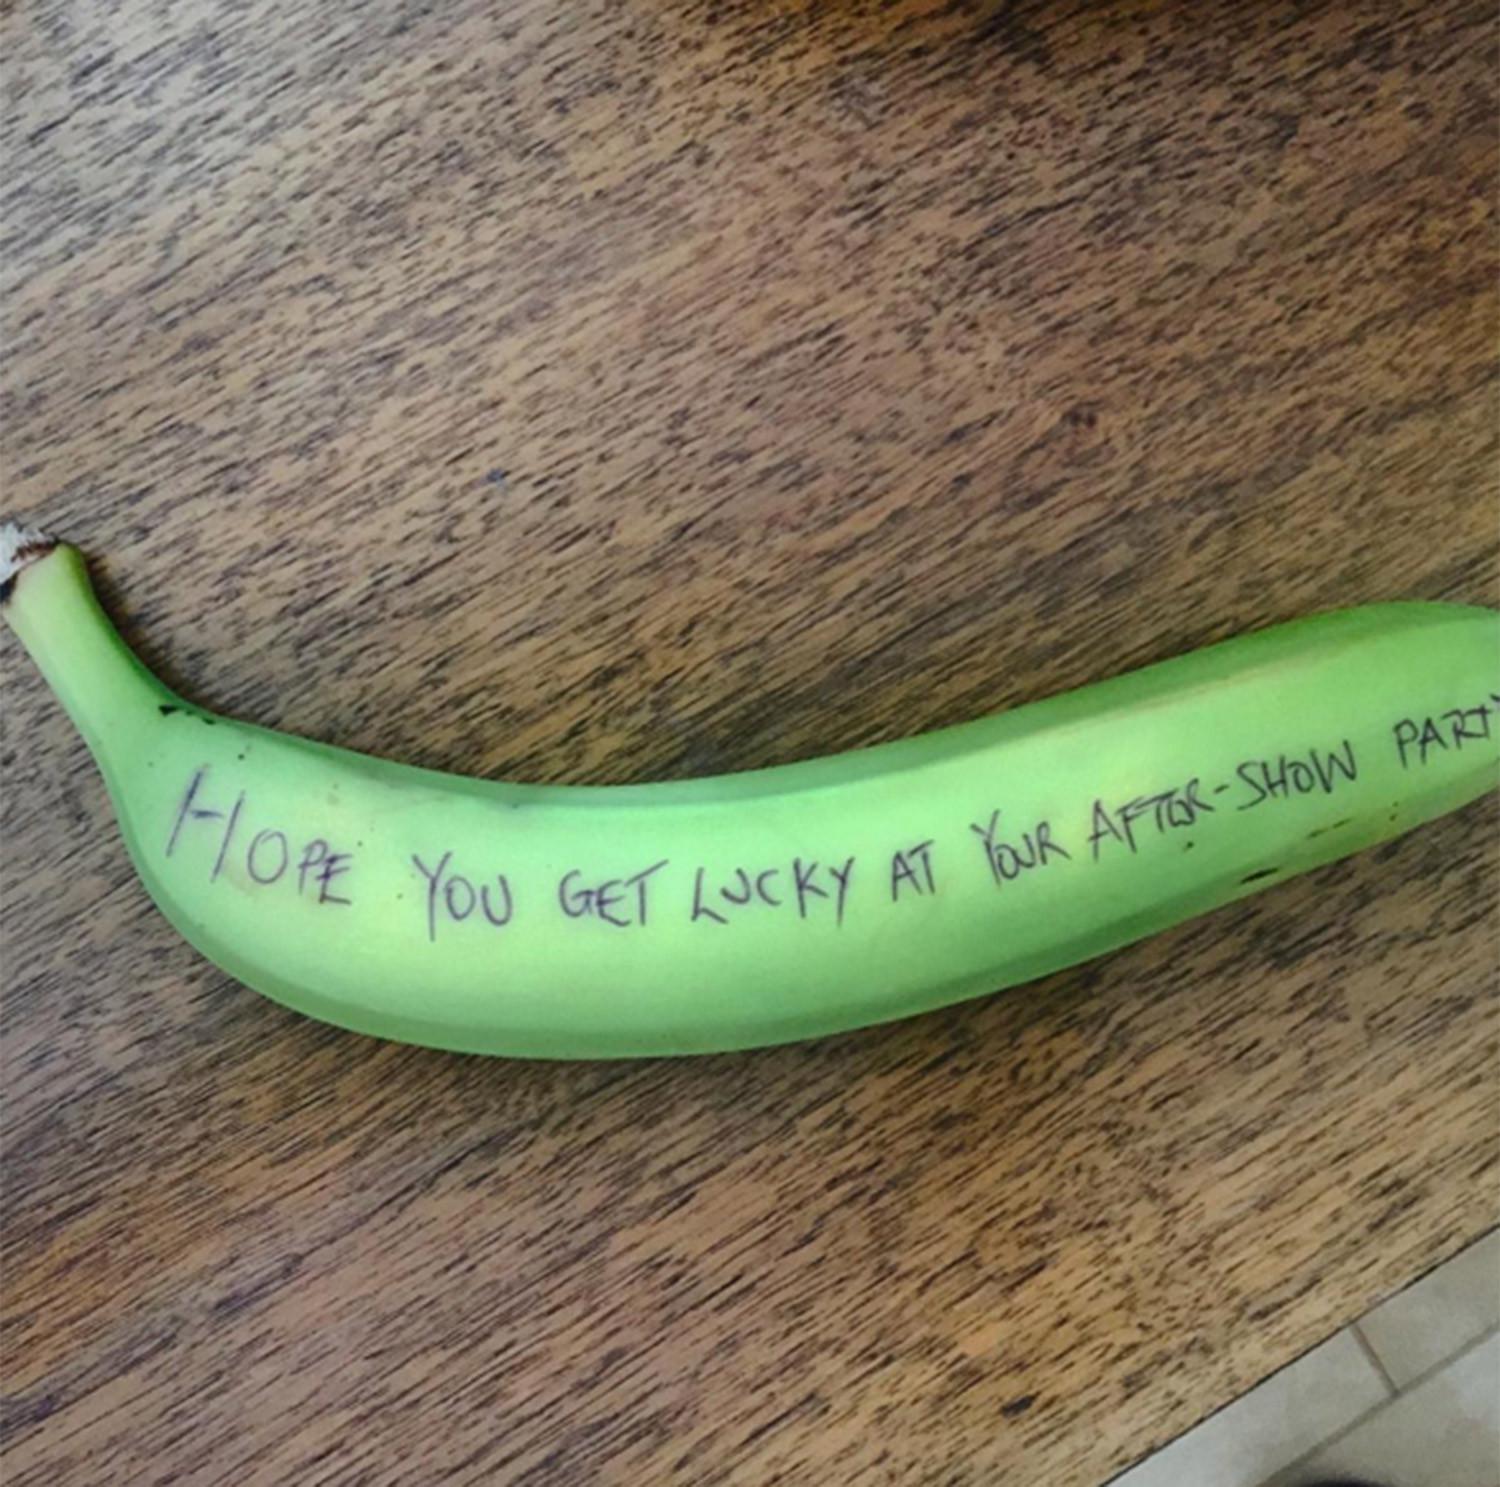 HOPE YOU GET LUCKY AT YOUR AFTER-SHOW PARTY